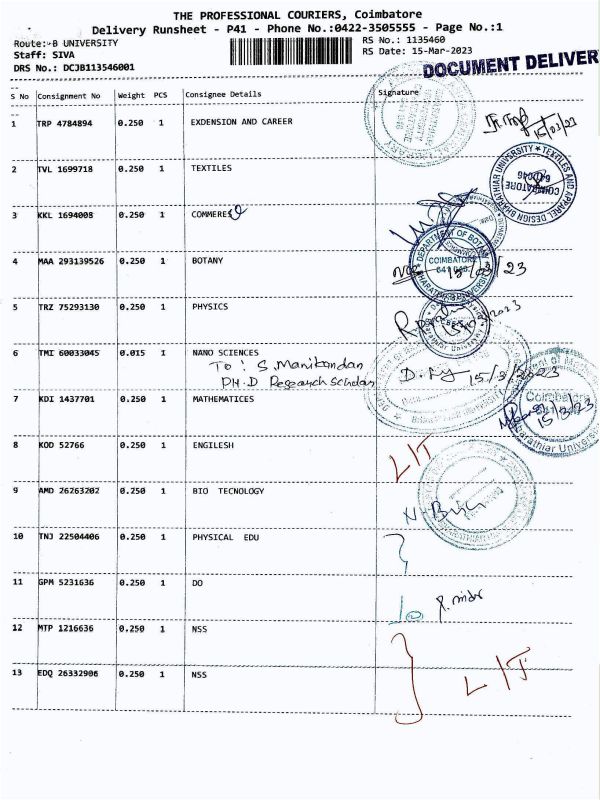 THE PROFESSIONAL COURIERS, Coimbatore
Delivery Runsheet - P41 - Phone No.:0422-3505555 - Page No.:1
Route:-B UNIVERSITY
RS No.: 1135460
Staff: SIVA
RS Date: 15-Mar-2023
DRS No.: DCJB113546001
DOCUMENT DELIVER
S No Consignment No Weight PCS Consignee Details Signature
1 TRP 4784894 0.250 1 EXDENSION AND CAREER
15/03/23
2 TVL 1699718 0.250 1 TEXTILES
BHARATHIAR UNIVERSITY ★ TEXTILES AND APPAREL DESIGN
COIMBATORE
3 KKL 1694008 0.250 1 COMMERES
4 MAA 293139526 0.250 1 BOTANY
DEPARTMENT OF BOTANY
COIMBATORE
641 046
15/03/23
5 TRZ 75293130 0.250 1 PHYSICS
6 TMI 60033045 0.015 1 NANO SCIENCES
TO: S. Manikandan
PH.D Research Scholar
15/3/2023
7 KDI 1437701 0.250 1 MATHEMATICES
Coimbatore
15/3/23
8 KOD 52766 0.250 1 ENGILESH
LIT
9 AMD 26263202 0.250 1 BIO TECNOLOGY
10 TNJ 22504406 0.250 1 PHYSICAL EDU
11 GPM 5231636 0.250 1 DO
12 MTP 1216636 0.250 1 NSS
13 EDQ 26332906 0.250 1 NSS
LIT